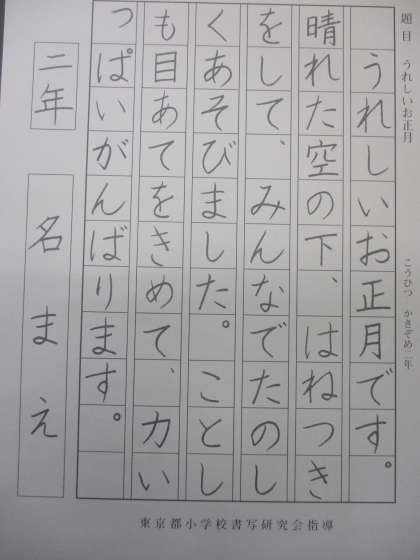 題目 うれしいお正月
こうひつ かきぞめ二年
うれしいお正月です。
晴れた空の下、はねつき
をして、みんなでたのし
くあそびました。ことし
も目あてをきめて、力い
っぱいがんばります。
二年
名まえ
東京都小学校書写研究会指導